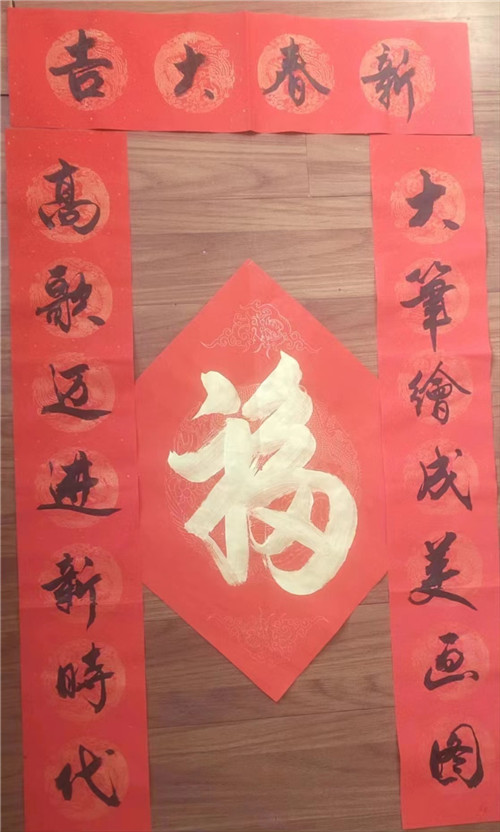 新春大吉
大筆繪成美画图
高歌迈进新時代
福